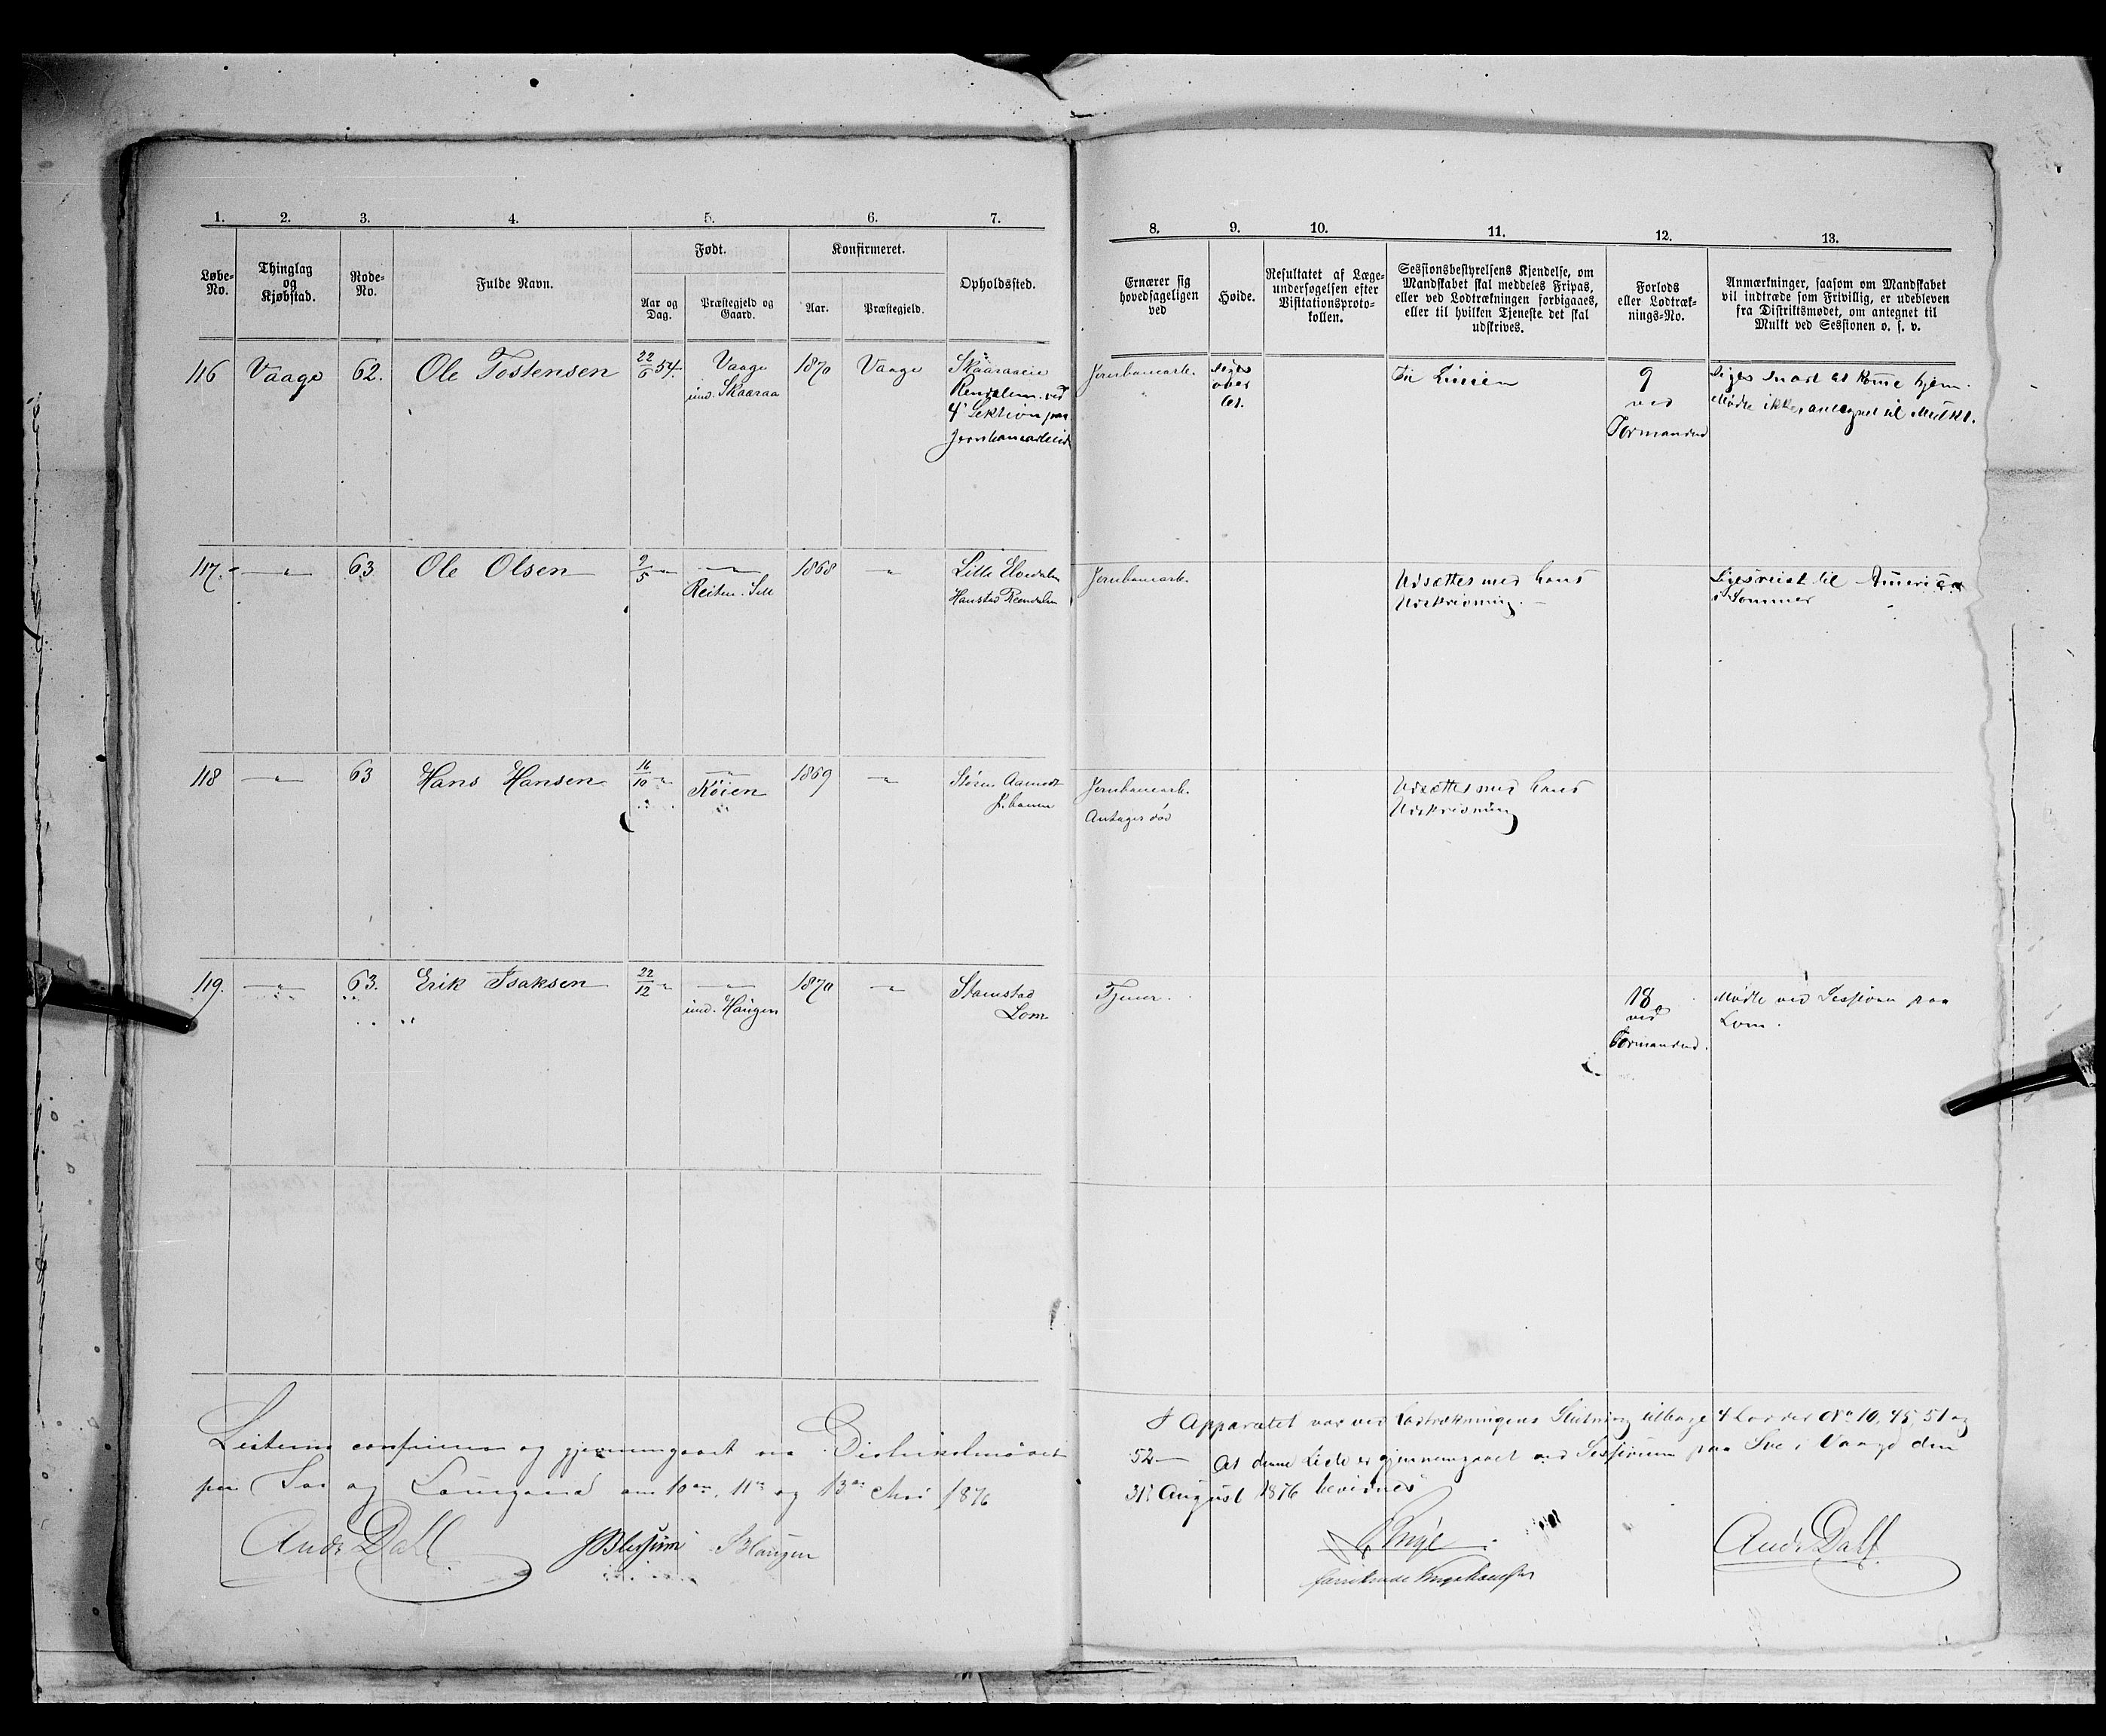 1. 2. 3. 4. 5. 6. 7.
Løbe-No. Thinglag og Kjøbstad. Rode-No. Fulde Navn. Født. Konfirmeret. Opholdssted.
Aar og Dag. Præstegjeld og Gaard. Aar. Præstegjeld.
116 Vaage 62. Ole Tostensen 22/6 54. Vaage 1870 Vaage Skaaraaeie
und. Skaaraa Rendalen. ved
4de Sektion paa
Jernbanearbeide
117. — " — 63 Ole Olsen 9/5 - " - — " — 1868 — " — Lille Elvedalen
Reiten. Sell Hanstad Reendalen
118 — " — 63 Hans Hansen 16/10 - " - — " — 1869 — " — Støren Aamodt
Røien J. banen
119. — " — 63. Erik Isaksen 22/12 - " - — " — 1870 — " — Stamstad
und. Haugen Lom
Listerne confereret og gjennemgaaet ved Distriktsmødet
paa og Lourgaard den 10de, 11te og 13de Mai 1876
Andr Dahl JBlessum Haugen
8. 9. 10. 11. 12. 13.
Ernærer sig hovedsageligen ved
Høide.
Resultatet af Læge-
undersøgelsen efter
Visitationsproto-
kollen.
Sessionsbestyrelsens Kjendelse, om
Mandskabet skal meddeles Fripas,
eller ved Lodtrækningen forbigaaes,
eller til hvilken Tjeneste det skal
udskrives.
Forlods
eller Lodtræk-
nings-No.
Anmærkninger, saasom om Mandskabet
vil indtræde som Frivillig, er udebleven
fra Distriktsmødet, om antegnet til
Mulkt ved Sessionen o. s. v.
Jernbanearb. siges over 61. Til Linien 9 ved Formanden siges snart at komme hjem.
Mødte ikke, antegnet til Mulkt.
Jernbanearb. Udsættes med hans Siges reist til America
Udskrivning. — i Sommer
Jernbanearb. Udsættes med hans
Antages død Udskrivning
Tjener. 18 ved Formanden. Mødte ved Sessionen paa
Lom.
I Apparatet var ved Lodtrækningens Slutning tilbage 4 Lodder No 10, 45, 51 og
52 — At denne Liste er gjennemgaaet ved Sessionen paa Sve i Vaage den
31te August 1876 bevidnes
Andr Dahl